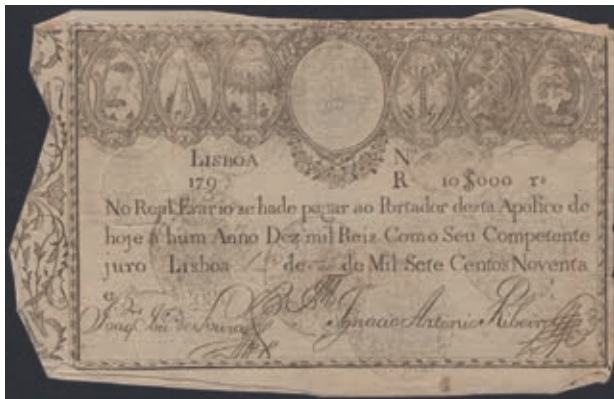 LISBOA N
179 R 10$000 rs
No Real Erario se hade pagar ao Portador desta Apolice de
hoje a hum Anno Dez mil Reis Com o Seu Competente
juro Lisboa de de Mil Sete Centos Noventa
e
Joaq de Souza Ignacio Antonio Ribeiro